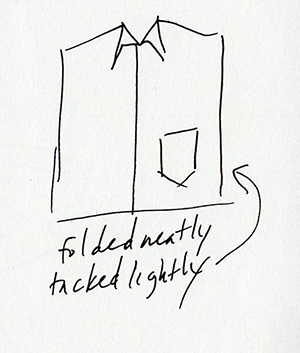 folded neatly
tacked lightly